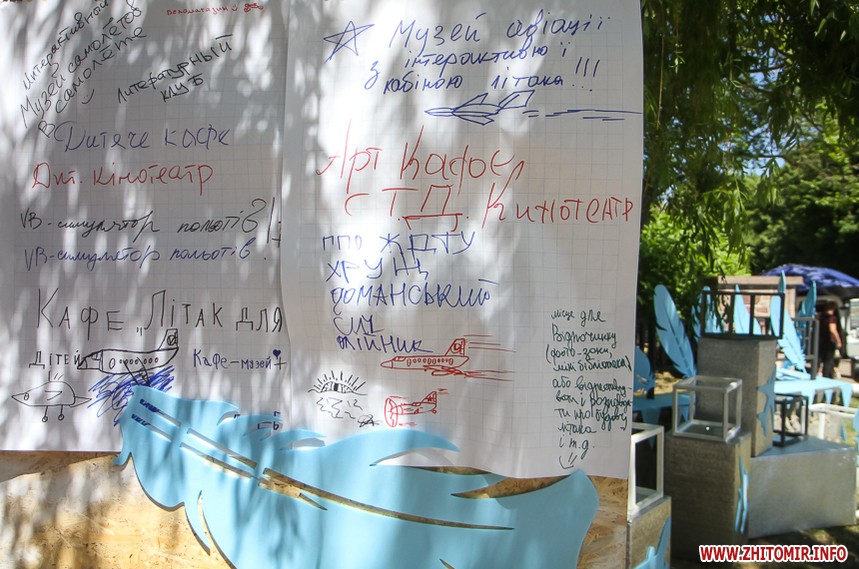 Интерактивной
Музей самолётов
в самолёте
Литературный
клуб
Дитяче кафе
Дит. кінотеатр
VB-симулятор польотів!
VB-симулятор польотів.
Кафе „Літак для
дітей
Кафе-музей
Музей авіації
інтерактивної
з кабіною літака!!!
Арт Кафе
С.Т.Д. Кинотеатр
ППО ЖДТУ
ХРУЩ
РОМАНСЬКИЙ
ОЛІЙНИК
місце для
відпочинку
(фото-зони,
міні бібліотека)
або
літака
і т.д.
WWW.ZHITOMIR.INFO